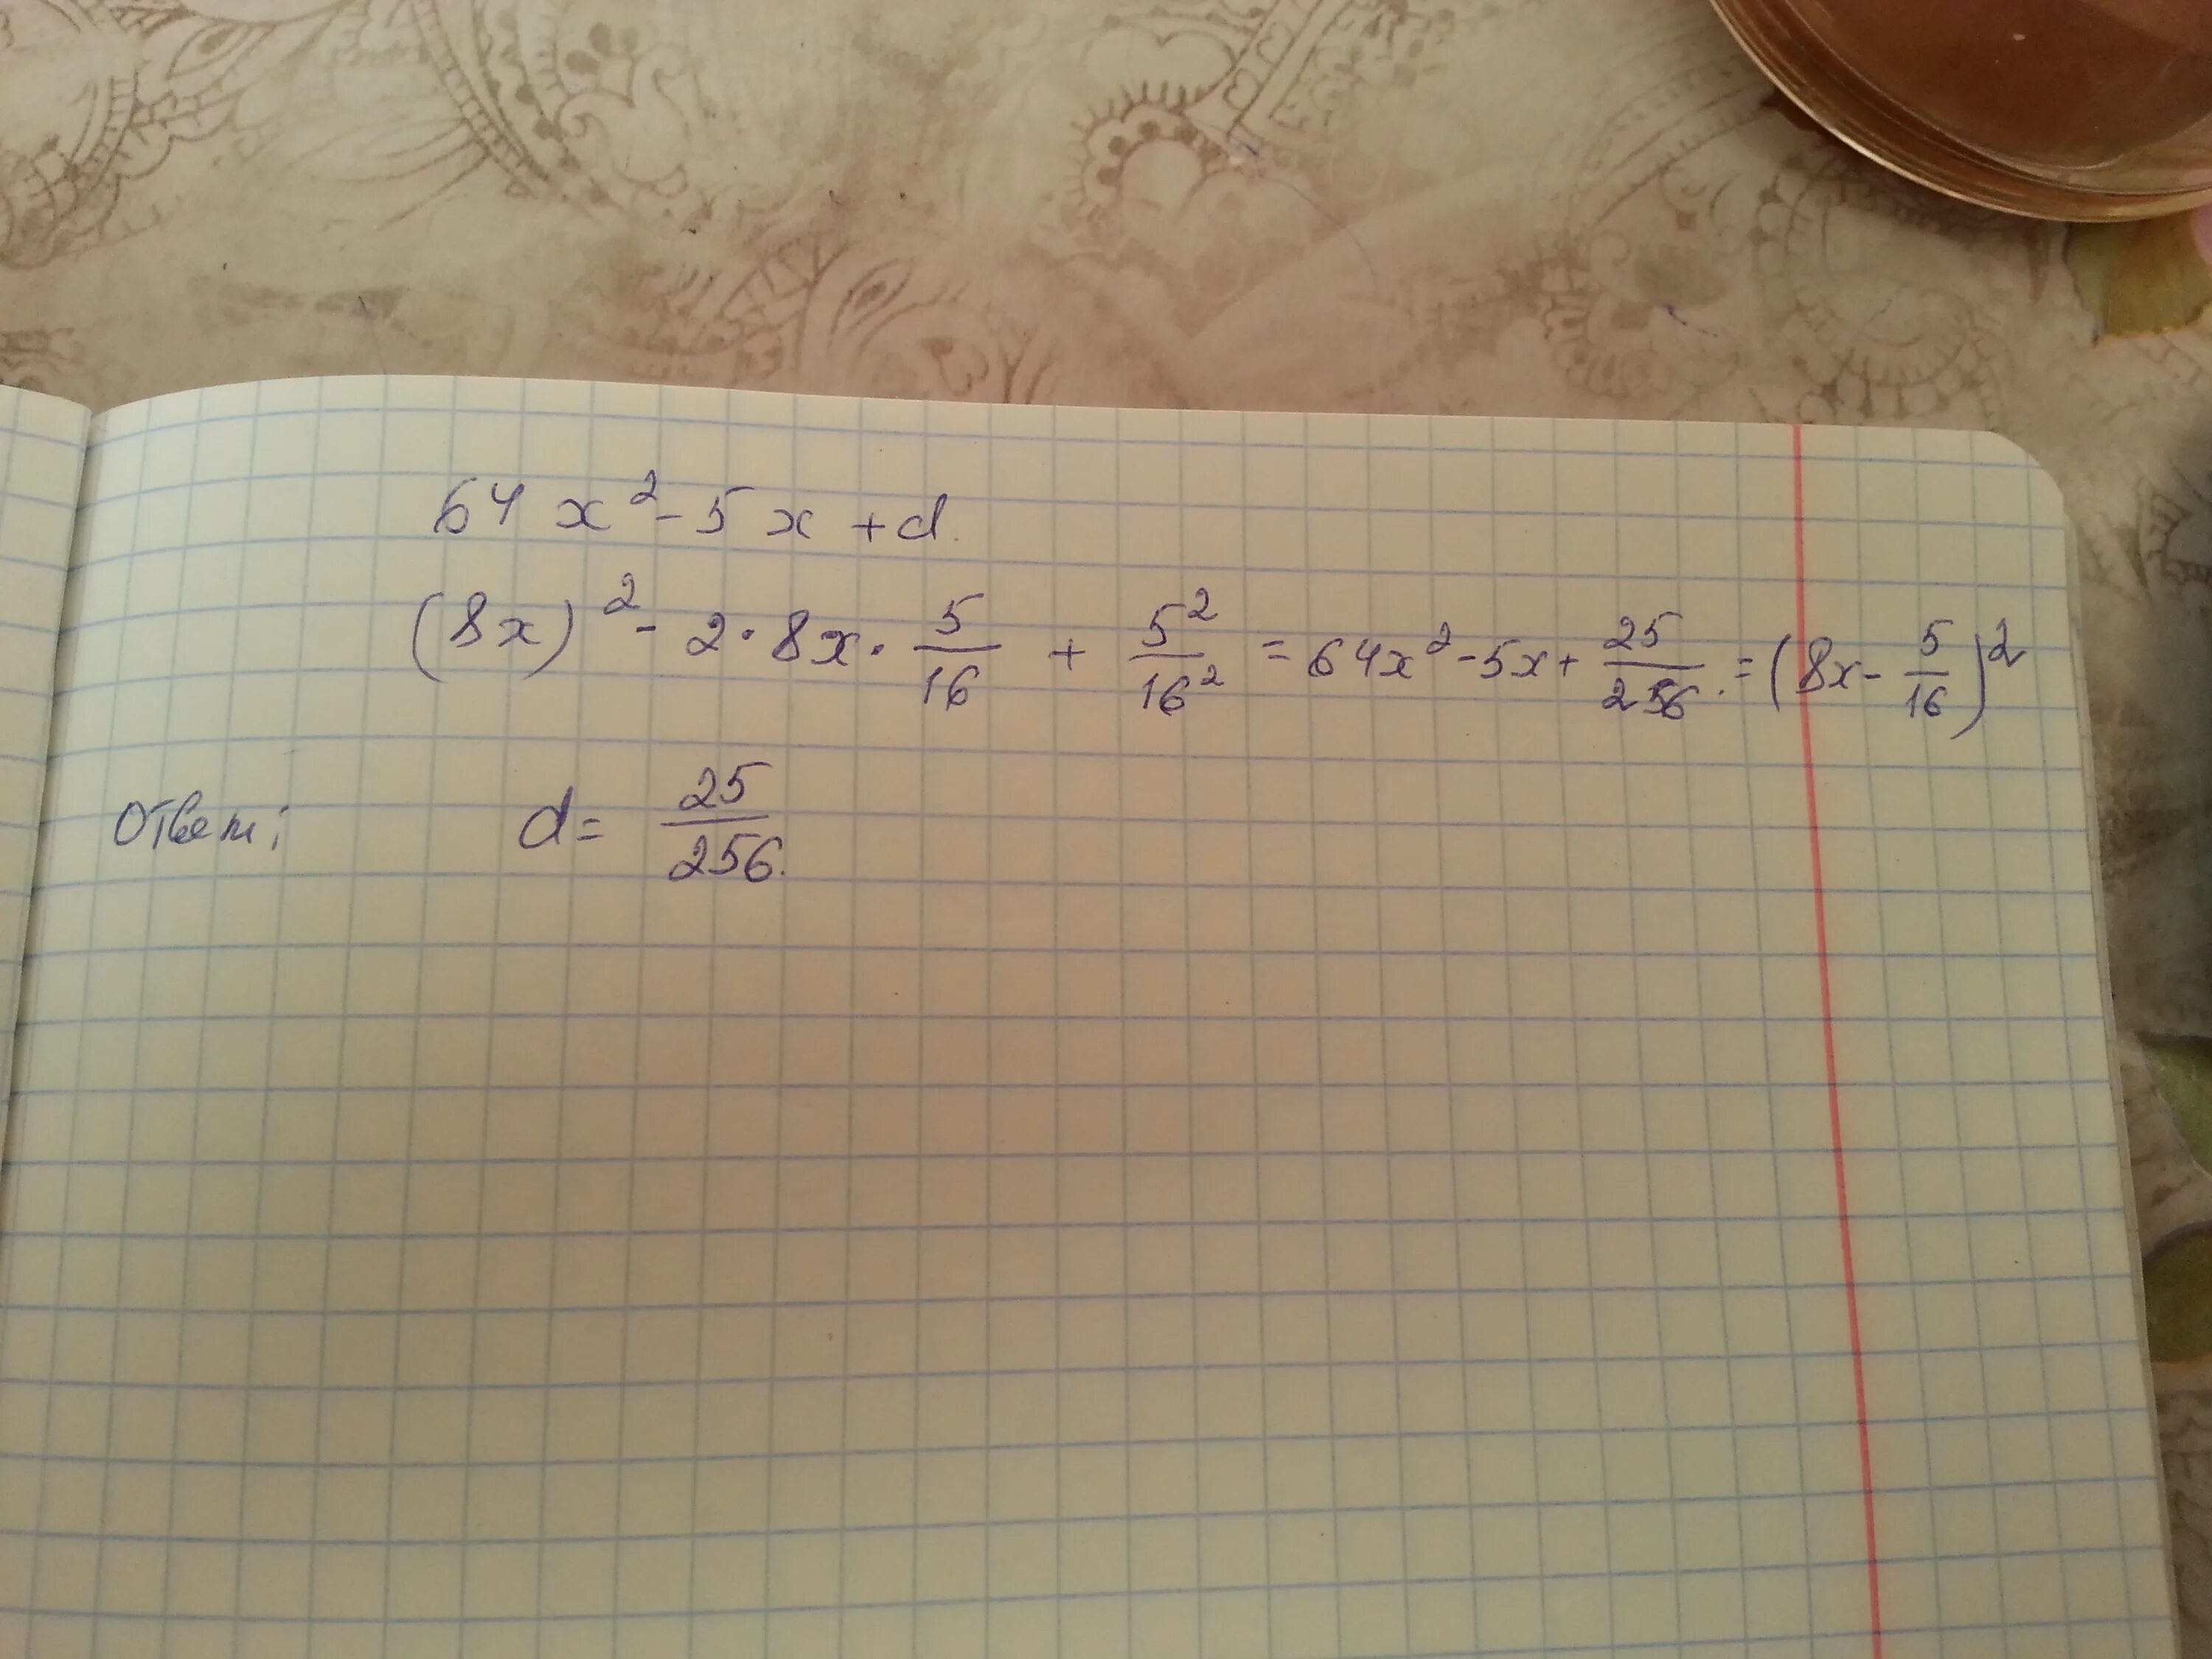 64x² - 5x + d.
(8x)² - 2·8x·5/16 + 5²/16² = 64x² - 5x + 25/256. = (8x - 5/16)²
Ответ: d = 25/256.